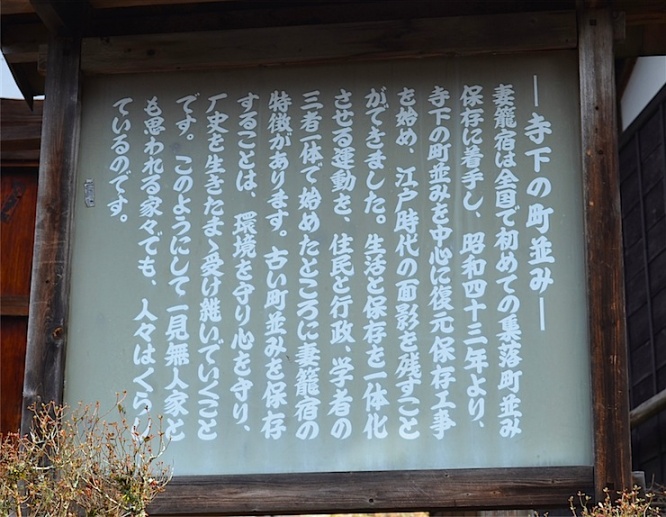 ―寺下の町並み―
妻籠宿は全国で初めての集落町並み
保存に着手し、昭和四十三年より、
寺下の町並みを中心に復元保存工事
を始め、江戸時代の面影を残すこと
ができました。生活と保存を一体化
させる運動を、住民と行政、学者の
三者一体で始めたところに妻籠宿の
特徴があります。古い町並みを保存
することは、環境を守り心を守り、
厂史を生きたまゝ受け継いでいくこと
です。このようにして一見無人家と
も思われる家々でも、人々はくらし
ているのです。